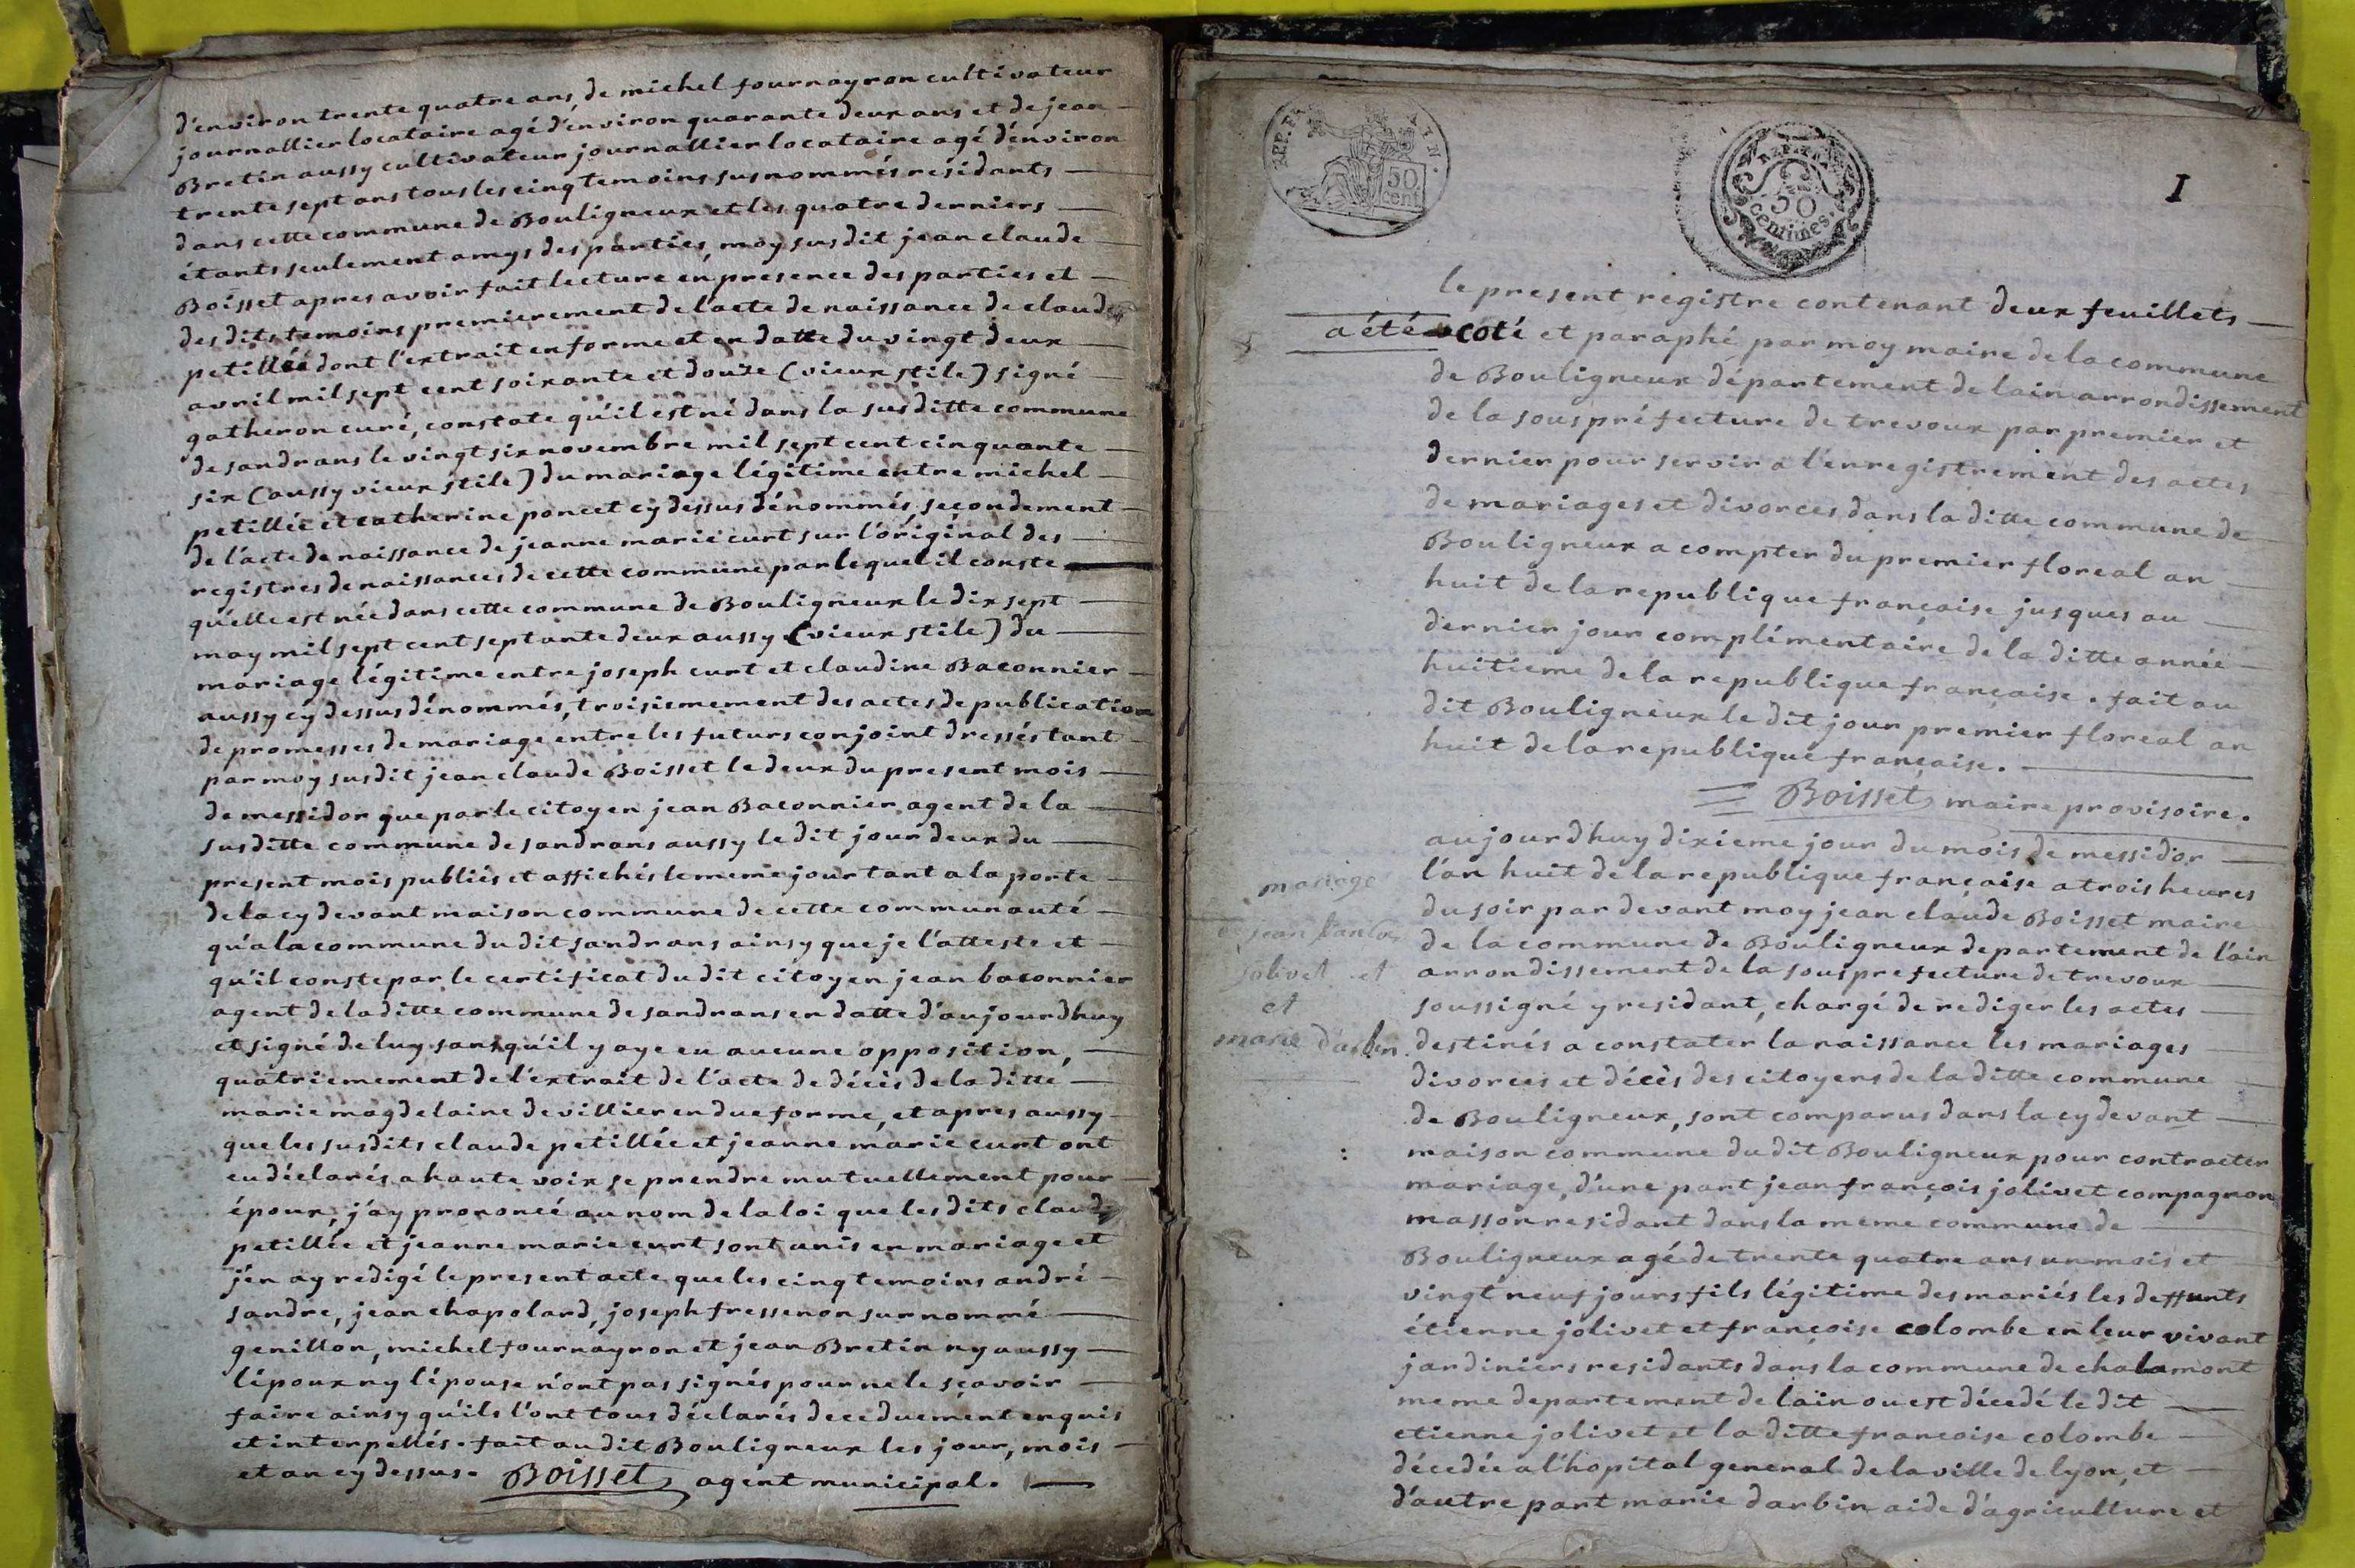 d'environ trente quatre ans, de michel fournayron cultivateur
journallier locataire agé d'environ quarante deux ans et de jean
Bretin aussy cultivateur journallier locataire agé d'environ
trente sept ans tous les cinq temoins susnommés residants
dans cette commune de Bouligneux et les quatre derniers
étants seulement amys des parties, moy susdit jean claude
Boisset apres avoir fait lecture en presence des parties et
des dits temoins premierement de l'acte de naissance de claude
petillée dont l'extrait en forme et en datte du vingt deux
avril mil sept cent soixante et douze (vieux stile) signé
gatheron curé, constate qu'il est né dans la susditte commune
de sandrans le vingt six novembre mil sept cent cinquante
six (aussy vieux stile) du mariage légitime entre michel
petillée et catherine poncet cy dessus dénommés, secondement
de l'acte de naissance de jeanne marie curt sur l'original des
registres de naissances de cette commune par lequel il conste
qu'elle est née dans cette commune de Bouligneux le dix sept
may mil sept cent septante deux aussy (vieux stile) du
mariage légitime entre joseph curt et claudine Baconnier
aussy cy dessus dénommés, troisiemement des actes de publication
de promesses de mariage entre les futurs conjoint dressés tant
par moy susdit jean claude Boisset le deux du present mois
de messidor que par le citoyen jean Baconnier agent de la
susditte commune de sandrans aussy le dit jour deux du
present mois publiés et affichés le meme jour tant a la porte
de la cy devant maison commune de cette communauté
qu'a la commune du dit sandrans ainsy que je l'atteste et
qu'il conste par le certificat du dit citoyen jean baconnier
agent de la ditte commune de sandrans en datte d'aujourdhuy
et signé de luy sans qu'il y aye eu aucune opposition,
quatriemement de l'extrait de l'acte de décès de la ditte
marie magdelaine devillier en due forme, et apres aussy
que les susdits claude petillée et jeanne marie curt ont
eu déclarés a haute voix se prendre mutuellement pour
époux, j'ay prononcé au nom de la loi que les dits claude
petillée et jeanne marie curt sont unis en mariage et
j'en ay redigé le present acte que les cinq temoins andré
sandre, jean chapolard, joseph fressenon surnommé
genillon, michel fournayron et jean Bretin ny aussy
l'époux ny l'épouse n'ont pas signés pour ne le sçavoir
faire ainsy qu'ils l'ont tous déclarés de ce duement enquis
et interpellés. fait au dit Bouligneux les jour, mois
et an cy dessus. Boisset agent municipal.
REP. FRA
50
cent.
REP. FRA.
50
centimes.
I
le present registre contenant deux feuillets
a été coté et paraphé par moy maire de la commune
de Bouligneux département de lain arrondissement
de la souspréfecture de trevoux par premier et
dernier pour servir a l'enregistrement des actes
de mariages et divorces dans la ditte commune de
Bouligneux a compter du premier floreal an
huit de la republique française jusques au
dernier jour complémentaire de la ditte année
huitieme de la republique française. fait au
dit Bouligneux le dit jour premier floreal an
huit de la republique française.
Boisset maire provisoire.
aujourdhuy dixieme jour du mois de messidor
l'an huit de la republique française a trois heures
du soir par devant moy jean claude Boisset maire
de la commune de Bouligneux departement de l'ain
arrondissement de la sousprefecture de trevoux
soussigné y residant, chargé de rediger les actes
destinés a constater la naissance les mariages
divorces et décès des citoyens de la ditte commune
de Bouligneux, sont comparus dans la cy devant
maison commune du dit Bouligneux pour contracter
mariage, d'une part jean françois jolivet compagnon
masson residant dans la meme commune de
Bouligneux agé de trente quatre ans un mois et
vingt neuf jours fils légitime des mariés les deffunts
étienne jolivet et françoise colombe en leur vivant
jardiniers residants dans la commune de chalamont
meme departement de lain ou est décedé le dit
etienne jolivet et la ditte francoise colombe
décedée a l'hopital general de la ville de lyon, et
d'autre part marie darbin aide d'agriculture et
mariage
jean
jolivet et
et
marie darbin.